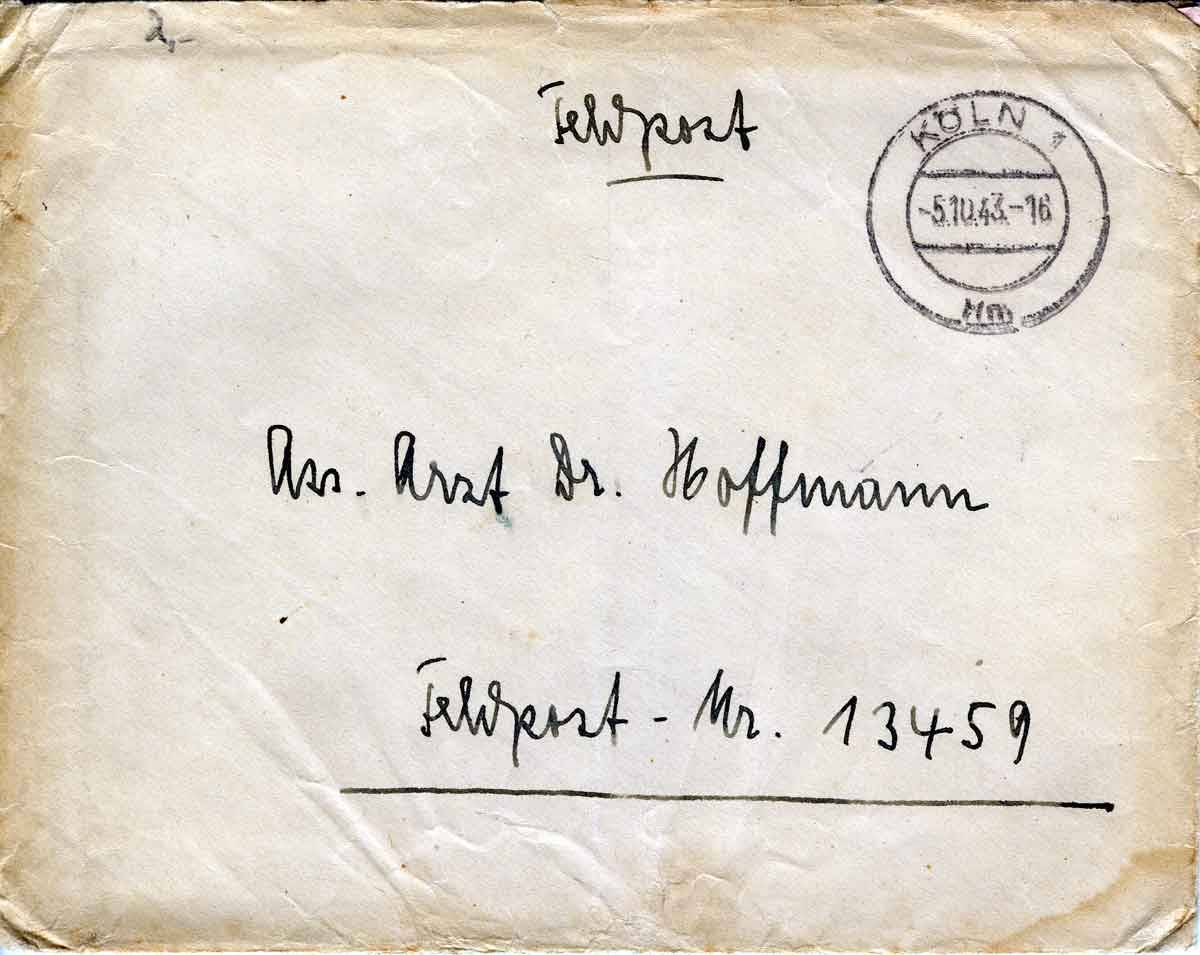 2,-
Feldpost
KÖLN 1
-5.10.43.-16
Ass. Arzt Dr. Hoffmann
Feldpost - Nr. 13459